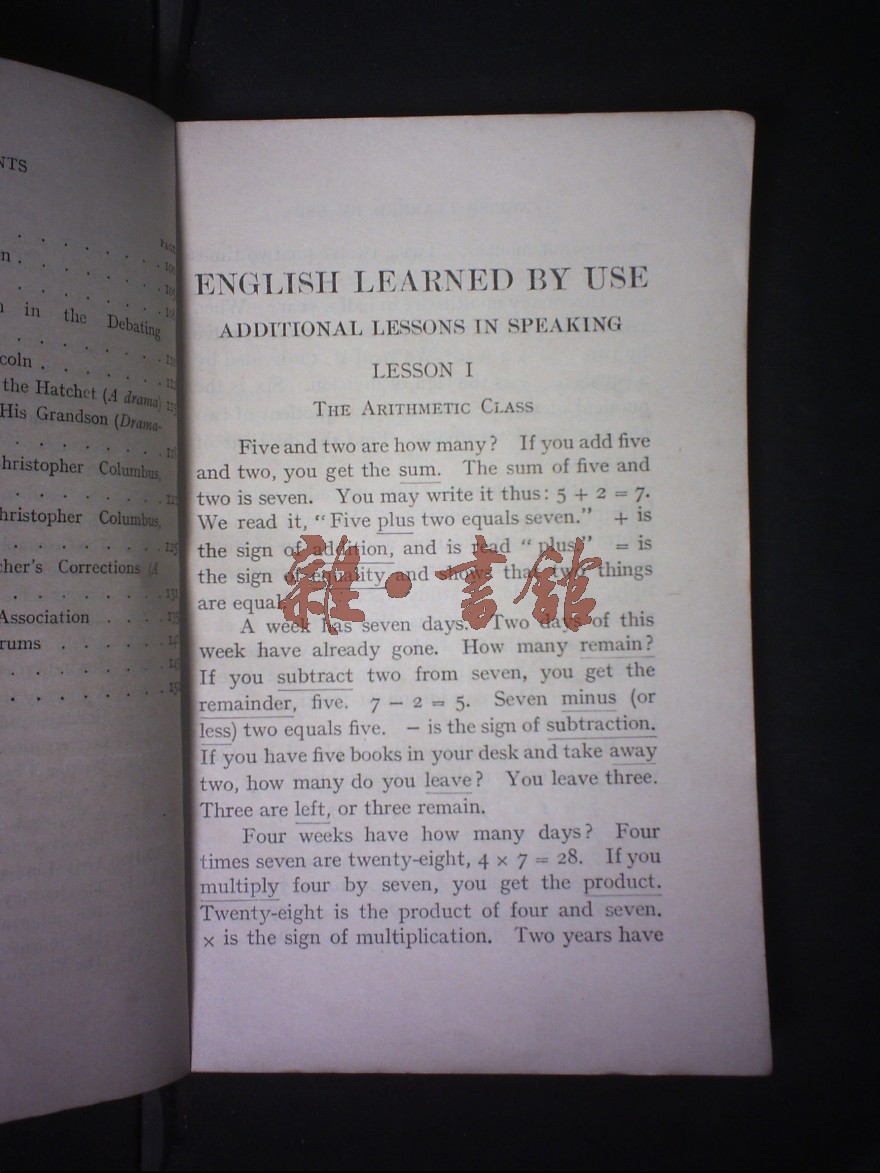 NTS
PAGE
n . . . . . .
n in the Debating
coln . . . . .
the Hatchet (A drama)
His Grandson (Drama-
hristopher Columbus,
hristopher Columbus,
her's Corrections (A
Association . . . .
rums . . . . .
ENGLISH LEARNED BY USE
ADDITIONAL LESSONS IN SPEAKING
LESSON I
THE ARITHMETIC CLASS
Five and two are how many? If you add five
and two, you get the sum. The sum of five and
two is seven. You may write it thus: 5 + 2 = 7.
We read it, "Five plus two equals seven." + is
the sign of addition, and is read "plus." = is
the sign of equality and shows that two things
are equal.
A week has seven days. Two days of this
week have already gone. How many remain?
If you subtract two from seven, you get the
remainder, five. 7 − 2 = 5. Seven minus (or
less) two equals five. − is the sign of subtraction.
If you have five books in your desk and take away
two, how many do you leave? You leave three.
Three are left, or three remain.
Four weeks have how many days? Four
times seven are twenty-eight, 4 × 7 = 28. If you
multiply four by seven, you get the product.
Twenty-eight is the product of four and seven.
× is the sign of multiplication. Two years have
雜·書館